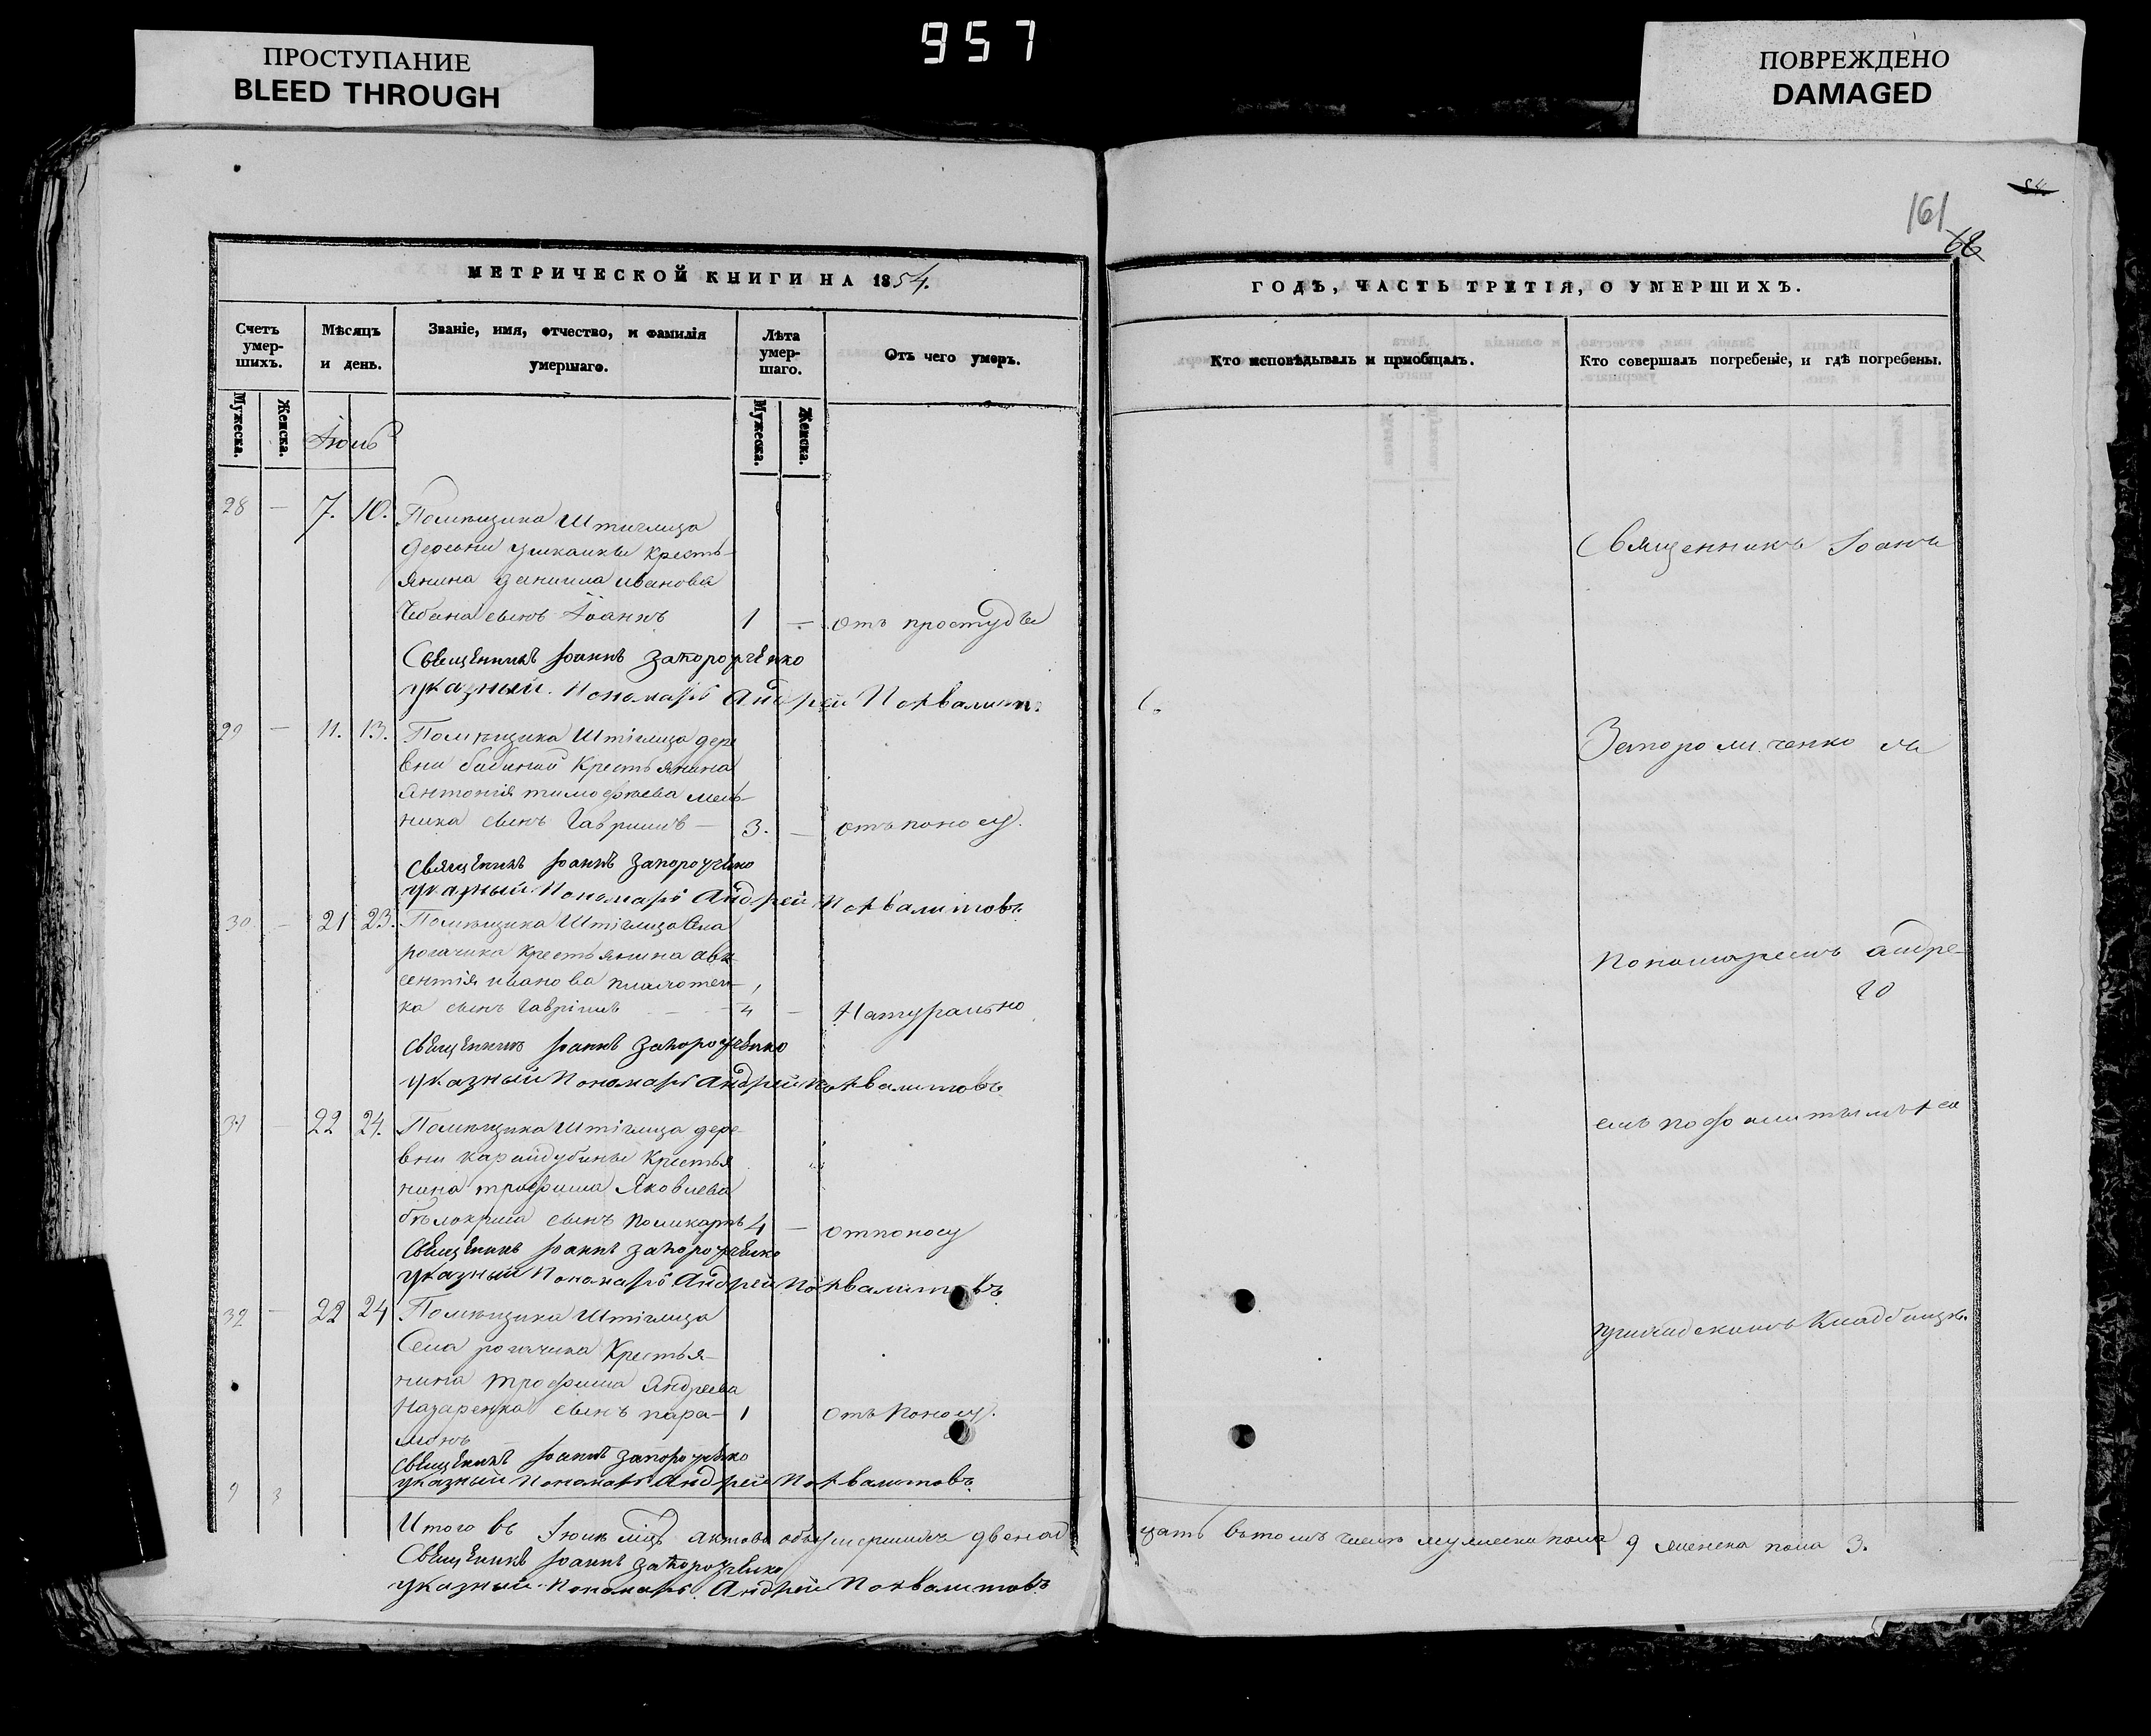 957
ПРОСТУПАНИЕ
BLEED THROUGH
ПОВРЕЖДЕНО
DAMAGED
54.
161
68
МЕТРИЧЕСКОЙ КНИГИ НА 1854.
ГОДЪ, ЧАСТЬ ТРЕТІЯ, О УМЕРШИХЪ.
Счетъ умер-шихъ.
Мужеска.
Женска.
Мѣсяцъ и день.
Званіе, имя, отчество, и фамилія умершаго.
Лѣта умер-шаго.
Мужеска.
Женска.
Отъ чего умеръ.
Кто исповѣдывалъ и пріобщалъ.
Кто совершалъ погребеніе, и гдѣ погребены.
Іюль
28 — 7. 10. Помѣщика Штиглица
деревни Ушкалки кресть-
янина Даниила Иванова
Чебана сынъ Іоаннъ 1 — отъ простуды
Священникъ Іоаннъ Запорожченко
указный Пономарь Андрей Похвалитов
29 — 11. 13. Помѣщика Штіглица дере
вни Бабиной крестьянина
Антонія Тимофѣева Мель-
ника сынъ Гавріилъ — 3. — отъ поносу.
Священникъ Іоаннъ Запорожченко
указный Пономарь Андрей Похвалитовъ
30 — 21 23. Помѣщика Штіглица Села
рогачика крестьянина Авк
сентія Иванова
ка сынъ Гавріилъ 1/4 — Натурально
Священникъ Іоаннъ Запорожченко
указный Пономарь Андрей Похвалитовъ
31 — 22 24. Помѣщика Штіглица дере-
вни Карайдубины крестья
нина Трофима Яковлева
сынъ Поликарпъ 4 — от поносу
Священникъ Іоаннъ Запорожченко
указный Пономарь Андрей Похвалитовъ
32 — 22 24 Помѣщика Штіглица
Села рогачика Крестья-
нина Трофима Андреева
Назаренка сынъ Пара- 1 отъ поносу.
монъ
Священникъ Іоаннъ Запорожченко
указный Пономарь Андрей Похвалитовъ
9 3
Священникъ Іоанъ
Запорожченко съ
Пономаремъ Андре-
емъ Похвалитымъ на
приходскомъ кладбищѣ.
Итого въ Іюлѣ мцѣ актовъ объ умершихъ двенад
цать въ томъ числѣ мужеска пола 9 женска пола 3.
Священникъ Іоаннъ Запорожченко
указный Пономарь Андрей Похвалитовъ